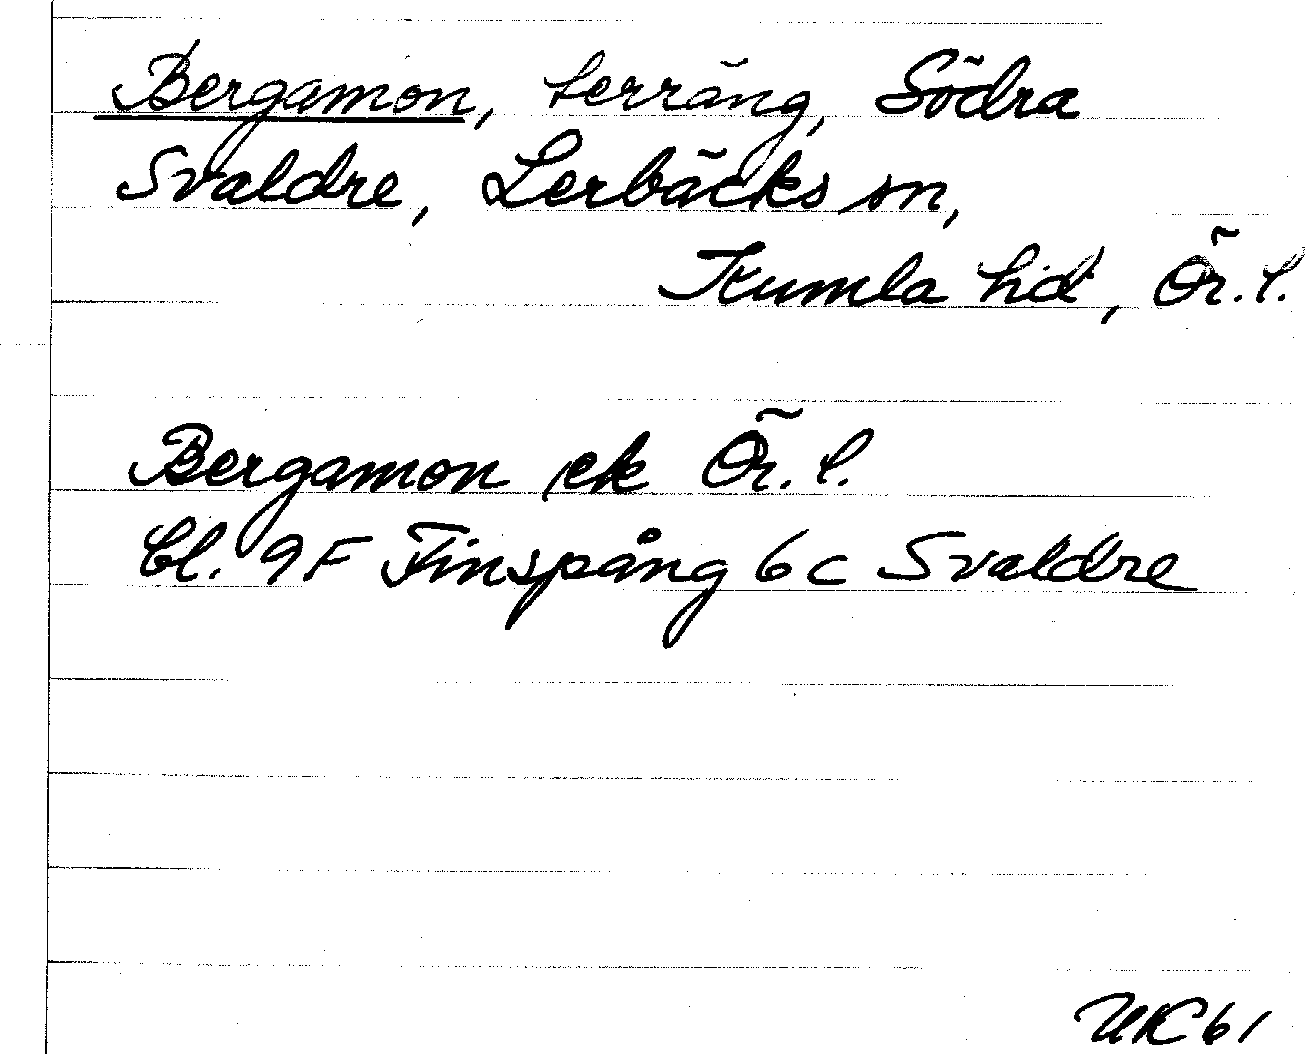 Bergamon, terräng, Södra
Svaldre, Lerbäcks sn,
Kumla hd, Ör. l.
Bergamon ek Ör. l.
bl. 9F Finspång 6c Svaldre
UK 61